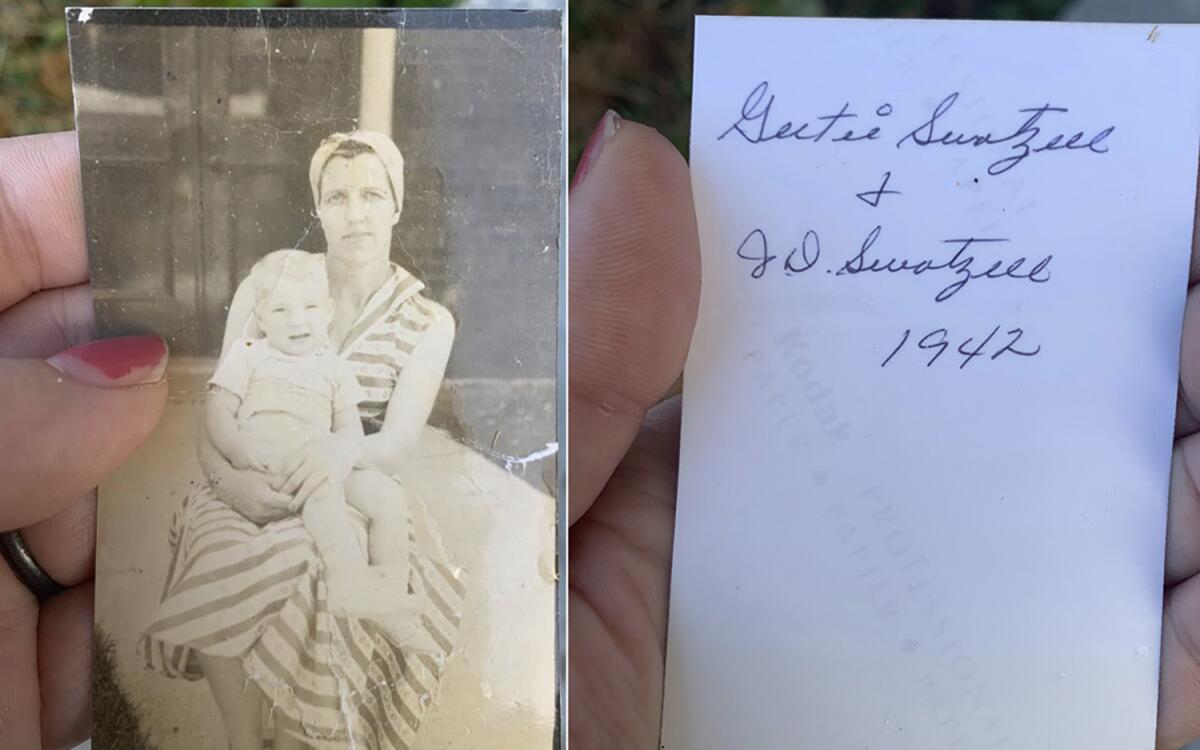 Gertie Swatzell
&
J.D. Swatzell
1942
Kodak
PAPER • PROFESSIONAL
PAPIER • PAPE